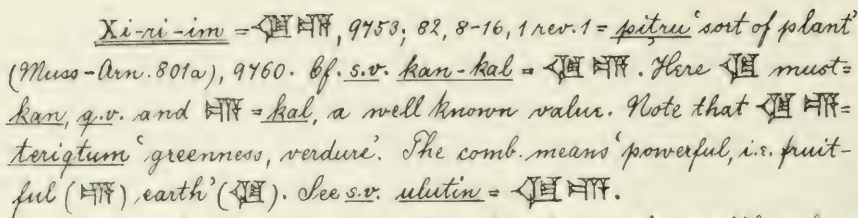 Xi-ri-im = 𒆠 𒆗, 9753; 82, 8-16, 1 rev. 1 = pitru 'sort of plant'
(Muss-Arn. 801a), 9760. Cf. s.v. kan-kal = 𒆠 𒆗. Here 𒆠 must=
kan, q.v. and 𒆗 = kal, a well known value. Note that 𒆠 𒆗=
teriqtum 'greenness, verdure'. The comb. means 'powerful, i.e. fruit-
ful (𒆗) earth' (𒆠). See s.v. ulutin = 𒆠 𒆗.